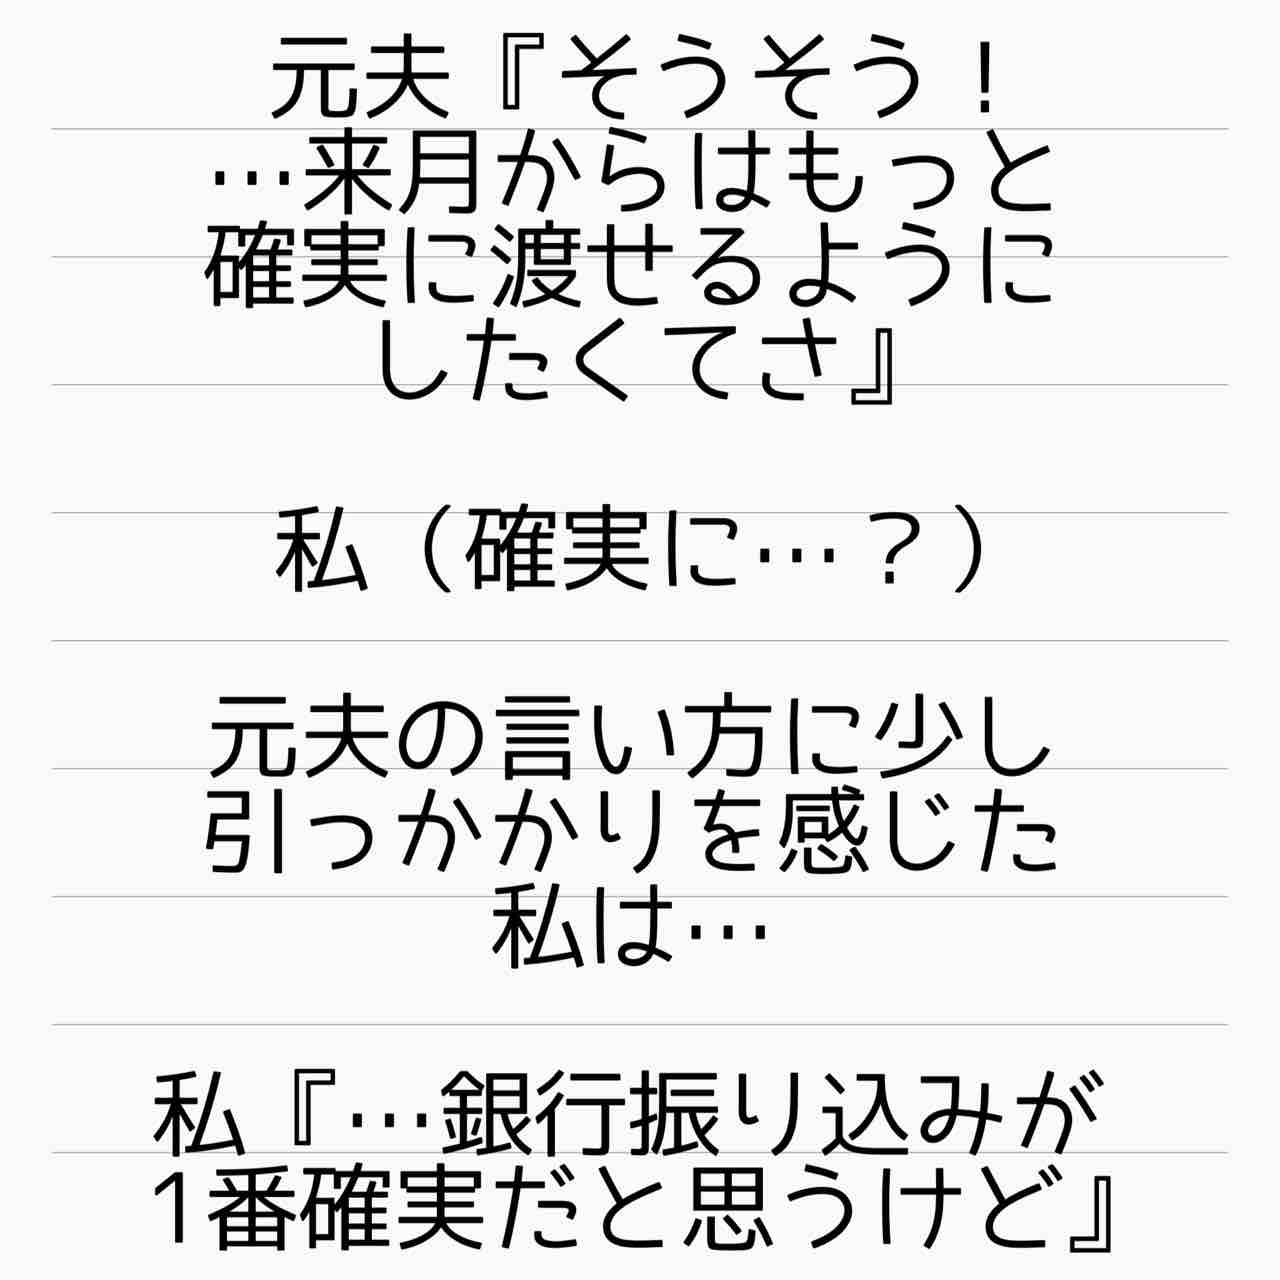 元夫『そうそう！
…来月からはもっと
確実に渡せるように
したくてさ』
私（確実に…？）
元夫の言い方に少し
引っかかりを感じた
私は…
私『…銀行振り込みが
1番確実だと思うけど』